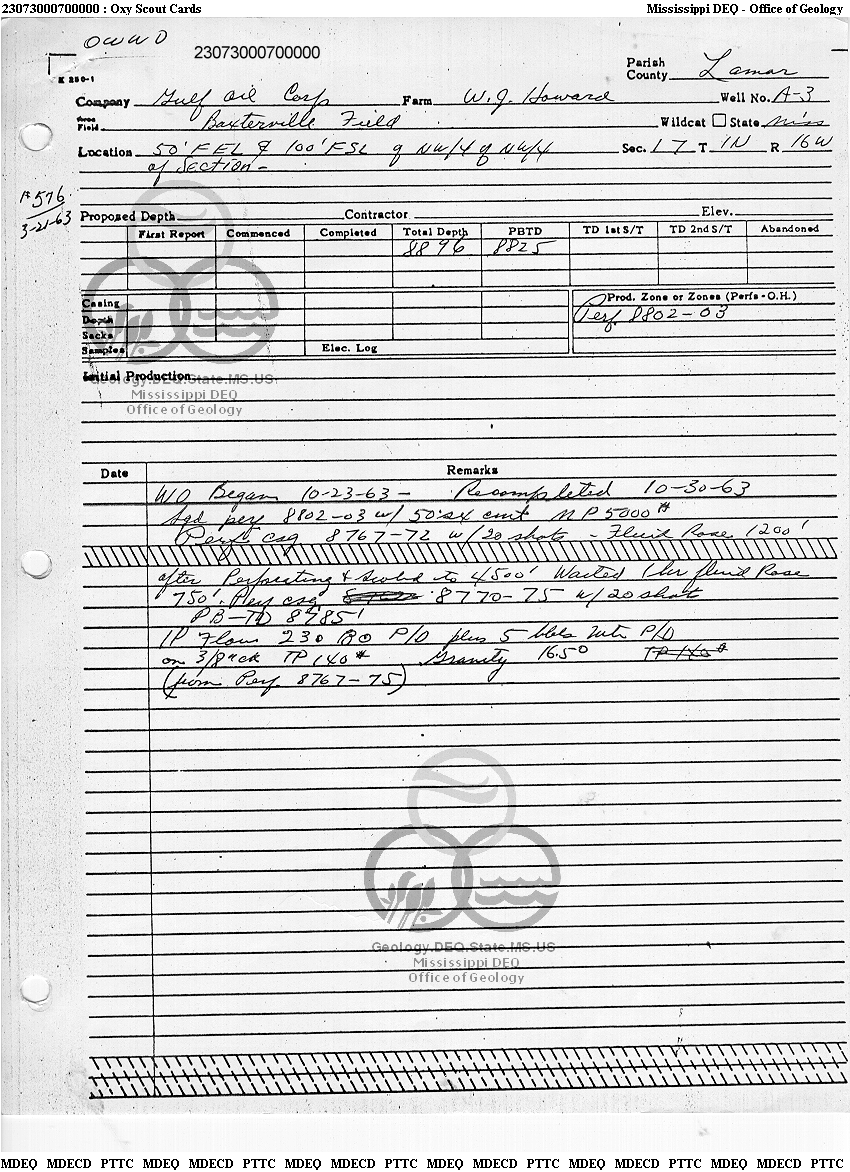 23073000700000 : Oxy Scout Cards Mississippi DEQ - Office of Geology
OWWO
23073000700000
K 250-1
Parish
County Lamar
Company Gulf Oil Corp Farm W.J. Howard Well No. A-3
Field Baxterville Field Wildcat State Miss
Location 50' FEL & 100' FSL of NW/4 of NW/4 Sec. 17 T 1N R 16W
of Section -
#576
3-21-63
Proposed Depth Contractor Elev.
First Report Commenced Completed Total Depth PBTD TD 1st S/T TD 2nd S/T Abandoned
8896 8825
Casing Prod. Zone or Zones (Perfs - O.H.)
Depth Perf 8802-03
Sacks
Samples Elec. Log
Initial Production
Geology.DEQ.State.MS.US
Mississippi DEQ
Office of Geology
Date Remarks
WO Began 10-23-63 - Recompleted 10-30-63
Sqd perf 8802-03 w/ 50 sx cmt MP 5000#
Perf csg 8767-72 w/20 shots - Fluid Rose 1200'
after Perforating & Swbd to 4500' Waited 1 hr fluid Rose
750'. Perf csg 8770-75 w/20 shots
PB-TD 8785'
IP Flow 230 BO P/D plus 5 bbls Wtr P/D
on 3/8" ck TP 140# Gravity 16.5° TP 140#
(from Perf 8767-75)
Geology.DEQ.State.MS.US
Mississippi DEQ
Office of Geology
MDEQ MDECD PTTC MDEQ MDECD PTTC MDEQ MDECD PTTC MDEQ MDECD PTTC MDEQ MDECD PTTC MDEQ MDECD PTTC